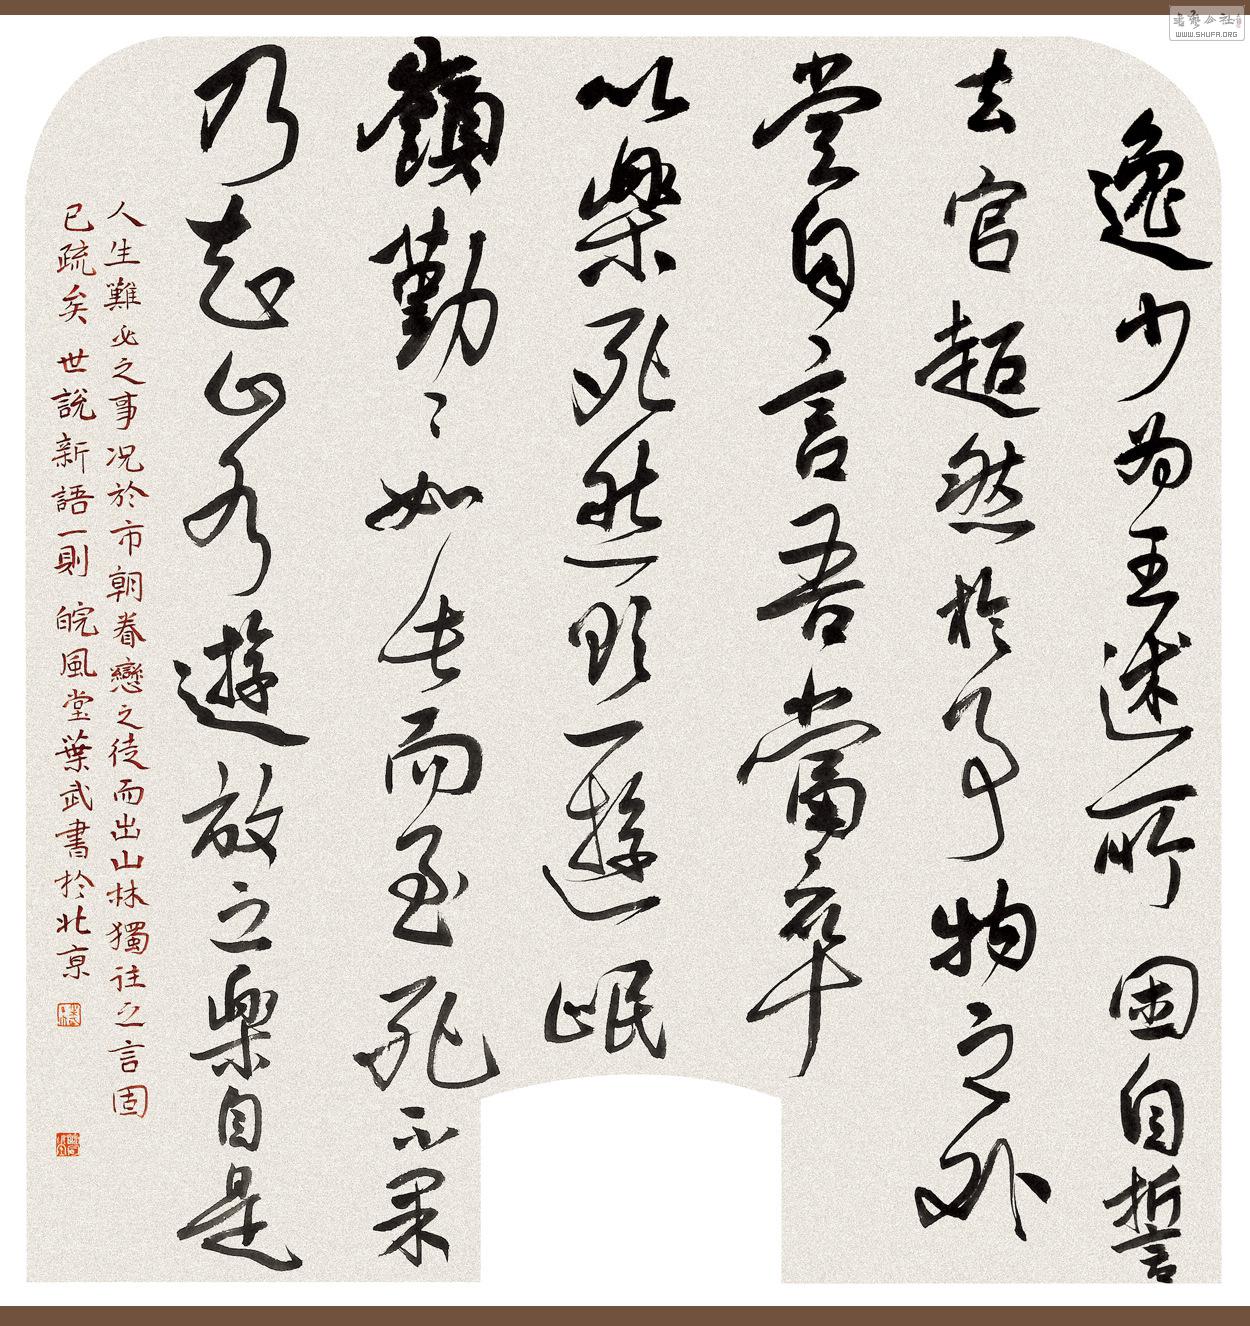 逸少为王述所困自誓
去官超然於事物之外
尝自言吾當卒
以樂死然欲一遊岷
嶺勤〻如此而至死不果
乃知山水遊放之樂自是
人生難必之事况於市朝眷戀之徒而出山林獨往之言固
已疏矣 世說新語一則 皖風堂葉武書於北京
書藝公社
WWW.SHUFA.ORG